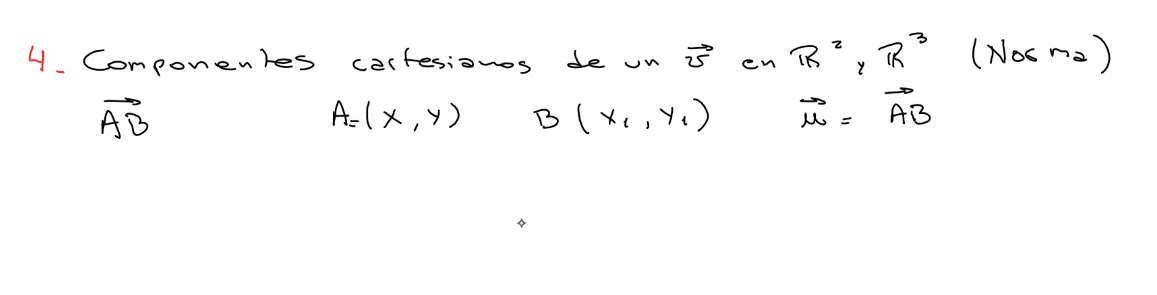 4- Componentes cartesianos de un v⃗ en ℝ², y ℝ³ (Norma)
A⃗B⃗ A=(x, y) B (x₁, y₁) u⃗ = A⃗B⃗